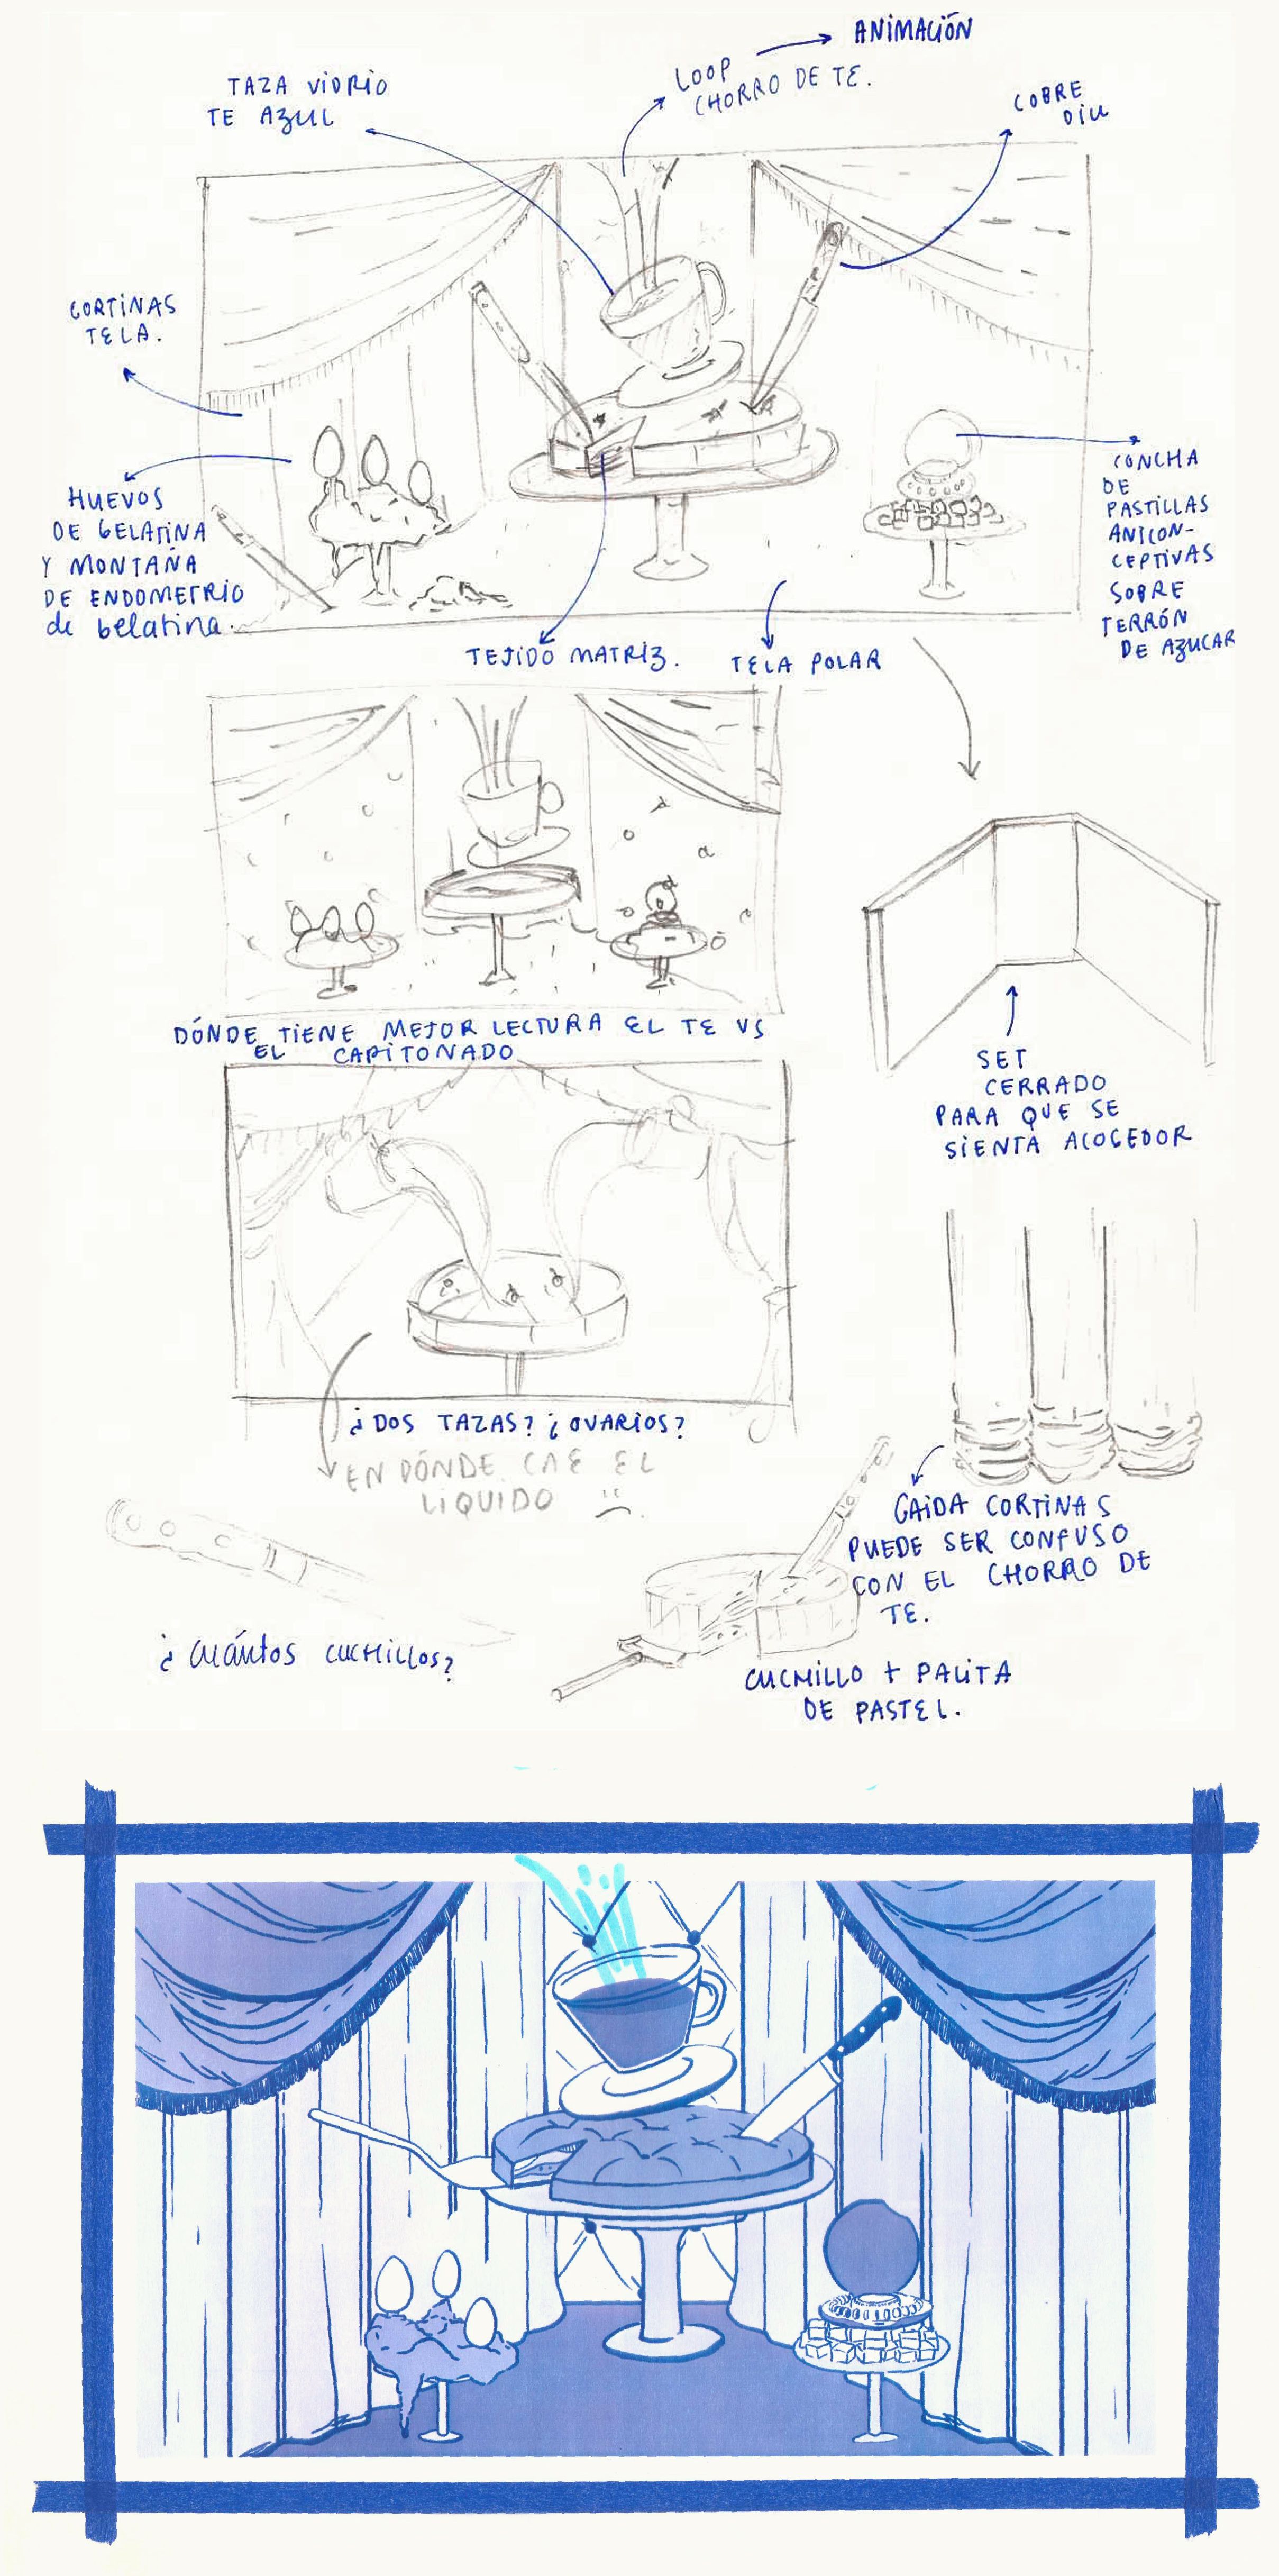 ANIMACIÓN
LOOP
CHORRO DE TE.
TAZA VIDRIO
TE AZUL
COBRE
DIU
CORTINAS
TELA.
HUEVOS
DE GELATINA
Y MONTAÑA
DE ENDOMETRIO
de Gelatina.
CONCHA
DE
PASTILLAS
ANTICON-
CEPTIVAS
SOBRE
TERRÓN
DE AZUCAR
TEJIDO MATRIZ.
TELA POLAR
DÓNDE TIENE MEJOR LECTURA EL TE VS
EL CAPITONADO
SET
CERRADO
PARA QUE SE
SIENTA ACOGEDOR
¿DOS TAZAS? ¿OVARIOS?
EN DÓNDE CAE EL
LIQUIDO
CAIDA CORTINAS
PUEDE SER CONFUSO
CON EL CHORRO DE
TE.
¿CUÁNTOS CUCHILLOS?
CUCHILLO + PALITA
DE PASTEL.